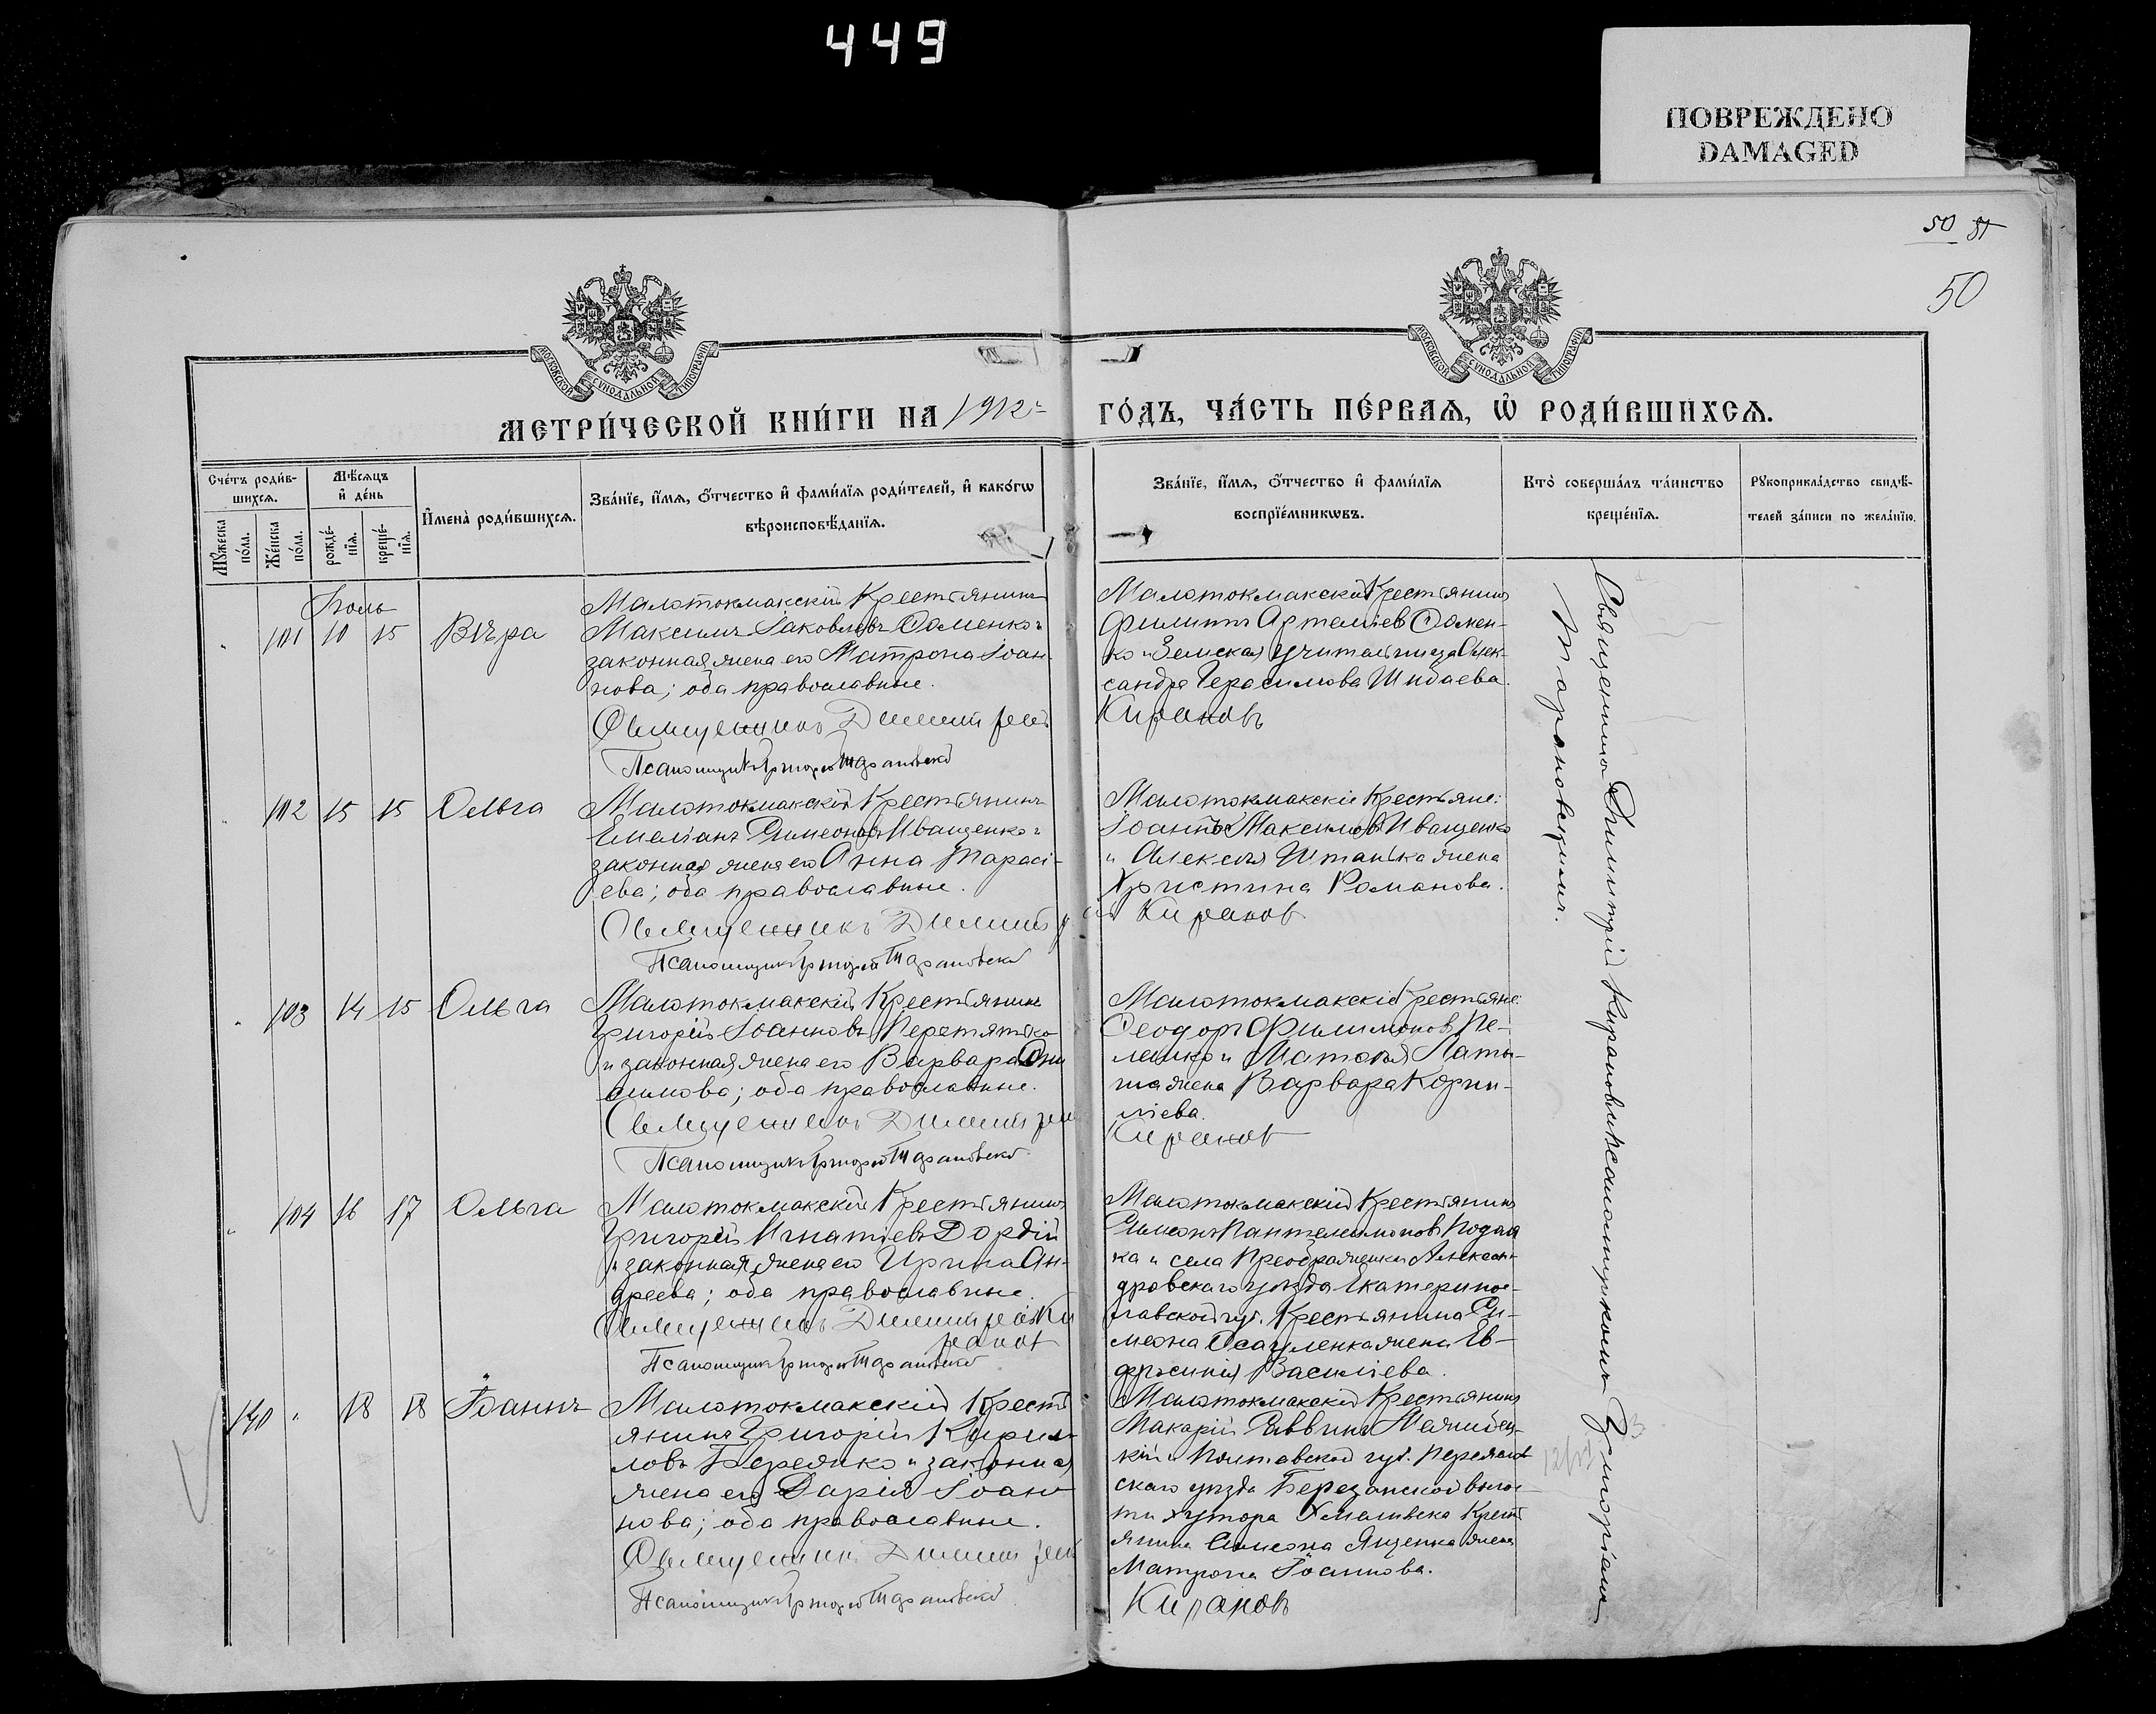 449
ПОВРЕЖДЕНО
DAMAGED
50 51
50
МОСКОВСКОЙ СѴНОДАЛЬНОЙ ТИПОГРАФІИ
МОСКОВСКОЙ СѴНОДАЛЬНОЙ ТИПОГРАФІИ
МЕТРИ́ЧЕСКОЙ КНИ́ГИ НА 1912 ГО́ДЪ, ЧА́СТЬ ПЕ́РВАЯ, Ѽ РОДИ́ВШИХСЯ.
Сче́тъ роди́в-
шихсѧ.
Мꙋ́жеска по́ла.
Же́нска по́ла.
Мѣ́сѧцъ и҆ де́нь
рожде́-нїѧ.
креще́-нїѧ.
И҆мена̀ роди́вшихсѧ.
Зва́нїе, и҆́мѧ, ѻ҆́тчество и҆ фами́лїѧ роди́телей, и҆ како́гѡ
вѣроисповѣ́данїѧ.
Зва́нїе, и҆́мѧ, ѻ҆́тчество и҆ фами́лїѧ
воспрїе́мникѡвъ.
Кто̀ соверша́лъ та́инство
креще́нїѧ.
Рꙋкоприкла́дство свидѣ́-
телей за́писи по жела́нїю.
Іюль
101 10 15 Вѣра
Малотокмакскій Крестьянинъ
Максимъ Іаковлевъ Соменко и
законная жена его Матрона Іоан-
нова; оба православные.
Священникъ Димитрій
Псаломщикъ Григорій Тарановскій
Малотокмакскій Крестьянинъ
Филиппъ Артеміев Сомен-
ко и Земская учительница Алек-
сандра Герасимова Шидаева.
Кирановъ
102 15 15 Ольга
Малотокмакскій Крестьянинъ
Емеліанъ Симеоновъ Иващенко и
законная жена его Анна Тарасі-
ева; оба православные.
Священникъ Димитрій
Псаломщикъ Григорій Тарановскій
Малотокмакскіе Крестьяне:
Іоаннъ Максимовъ Иващенко
и Алексія Штанька жена
Христина Романова.
Киранов
103 14 15 Ольга
Малотокмакскій Крестьянинъ
Григорій Іоанновъ Перетятько
и законная жена его Варвара Они
симова; оба православные.
Священникъ Димитрій
Псаломщикъ Григорій Тарановскій
Малотокмакскіе Крестьяне:
Ѳеодоръ Филимонов
Варвара Корни-
ліева.
Киранов
104 16 17 Ольга
Малотокмакскій Крестьянинъ
Григорій Игнатіевъ Дордій
и законная жена его Ирина Ан-
дреева; оба православные.
Священникъ Димитрій Ки
ранов
Псаломщикъ Григорій Тарановскій
Малотокмакскій Крестьянинъ
Симеонъ Пантелеимоновъ
ка и села Преображенки Алексан-
дровскаго уѣзда Екатеринос-
лавской губ. Крестьянина Си-
меона Осауленка жена Ев-
фросинія Василіева.
140 " 18 18 Іоаннъ
Малотокмакскій Кресть
янинъ Григорій Кирил-
ловъ Бережко и законная
жена его Дарія Іоан-
нова; оба православные.
Священникъ Димитрій
Псаломщикъ Григорій Тарановскій
Малотокмакскій Крестьянинъ
Макарій Саввинъ
кій и Полтавской губ. Переяслав-
скаго уѣзда Березанской волос-
ти хутора Хмельевска Кресть
янина Симеона Яценка жена
Матрона Іоаннова.
Кирановъ
Священникъ Димитрій Кирановъ съ псаломщикомъ Григоріемъ
Тарановскимъ.